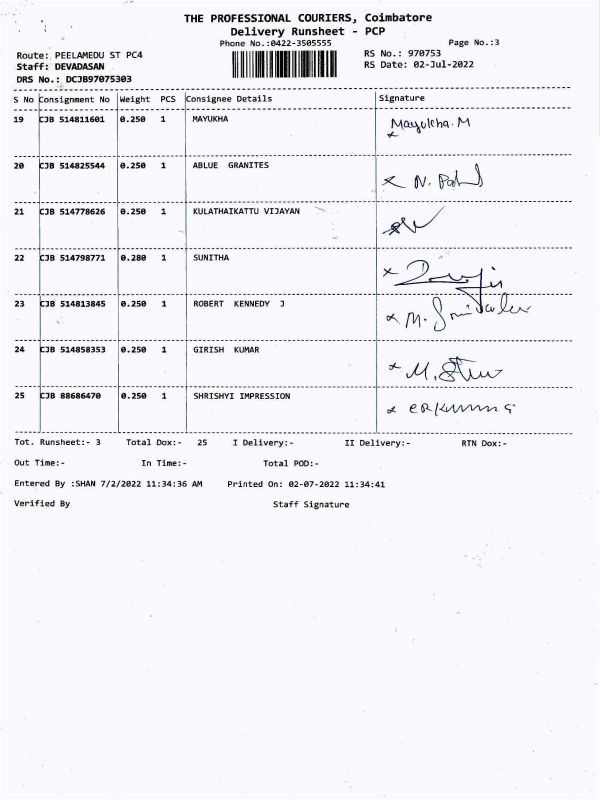 THE PROFESSIONAL COURIERS, Coimbatore
Delivery Runsheet - PCP
Phone No.:0422-3505555 Page No.:3
Route: PEELAMEDU ST PC4 RS No.: 970753
Staff: DEVADASAN RS Date: 02-Jul-2022
DRS No.: DCJB97075303
S No Consignment No Weight PCS Consignee Details Signature
19 CJB 514811601 0.250 1 MAYUKHA Mayukha.M
20 CJB 514825544 0.250 1 ABLUE GRANITES
21 CJB 514778626 0.250 1 KULATHAIKATTU VIJAYAN
22 CJB 514798771 0.280 1 SUNITHA
23 CJB 514813845 0.250 1 ROBERT KENNEDY J
24 CJB 514858353 0.250 1 GIRISH KUMAR
25 CJB 88686470 0.250 1 SHRISHYI IMPRESSION
Tot. Runsheet:- 3 Total Dox:- 25 I Delivery:- II Delivery:- RTN Dox:-
Out Time:- In Time:- Total POD:-
Entered By :SHAN 7/2/2022 11:34:36 AM Printed On: 02-07-2022 11:34:41
Verified By Staff Signature